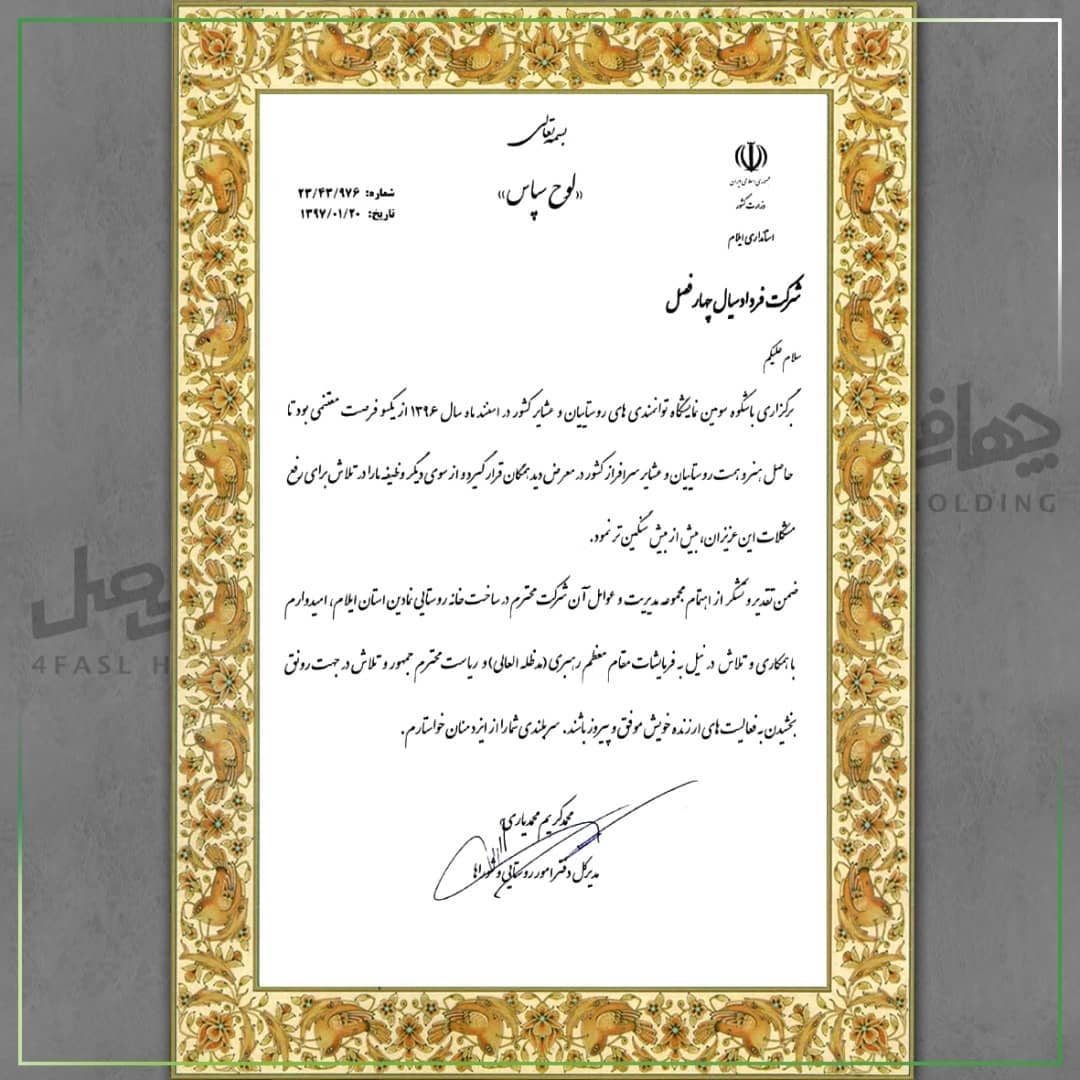 بسمه تعالی
«لوح سپاس»
جمهوری اسلامی ایران
وزارت کشور
استانداری ایلام
شماره: ۲۳/۴۳/۹۷۶
تاریخ: ۱۳۹۷/۰۱/۲۰
شرکت فرداد سیال چهار فصل
سلام علیکم
برگزاری باشکوه سومین نمایشگاه توانمندی های روستاییان و عشایر کشور در اسفند ماه سال ۱۳۹۶ از یکسو فرصت مغتنمی بود تا
حاصل هنر و همت روستاییان و عشایر سرافراز کشور در معرض دید همگان قرار گیرد و از سوی دیگر وظیفه ما را در تلاش برای رفع
مشکلات این عزیزان، بیش از پیش سنگین تر نمود.
ضمن تقدیر و تشکر از اهتمام مجموعه مدیریت و عوامل آن شرکت محترم در ساخت خانه روستایی نمادین استان ایلام، امیدوارم
با همکاری و تلاش در نیل به فرمایشات مقام معظم رهبری (مدظله العالی) و ریاست محترم جمهور و تلاش در جهت رونق
بخشیدن به فعالیت های ارزنده خویش موفق و پیروز باشند. سربلندی شما را از ایزد منان خواستارم.
محمدکریم محمدیاری
مدیرکل دفتر امور روستایی و شوراها
HOLDING
4FASL H